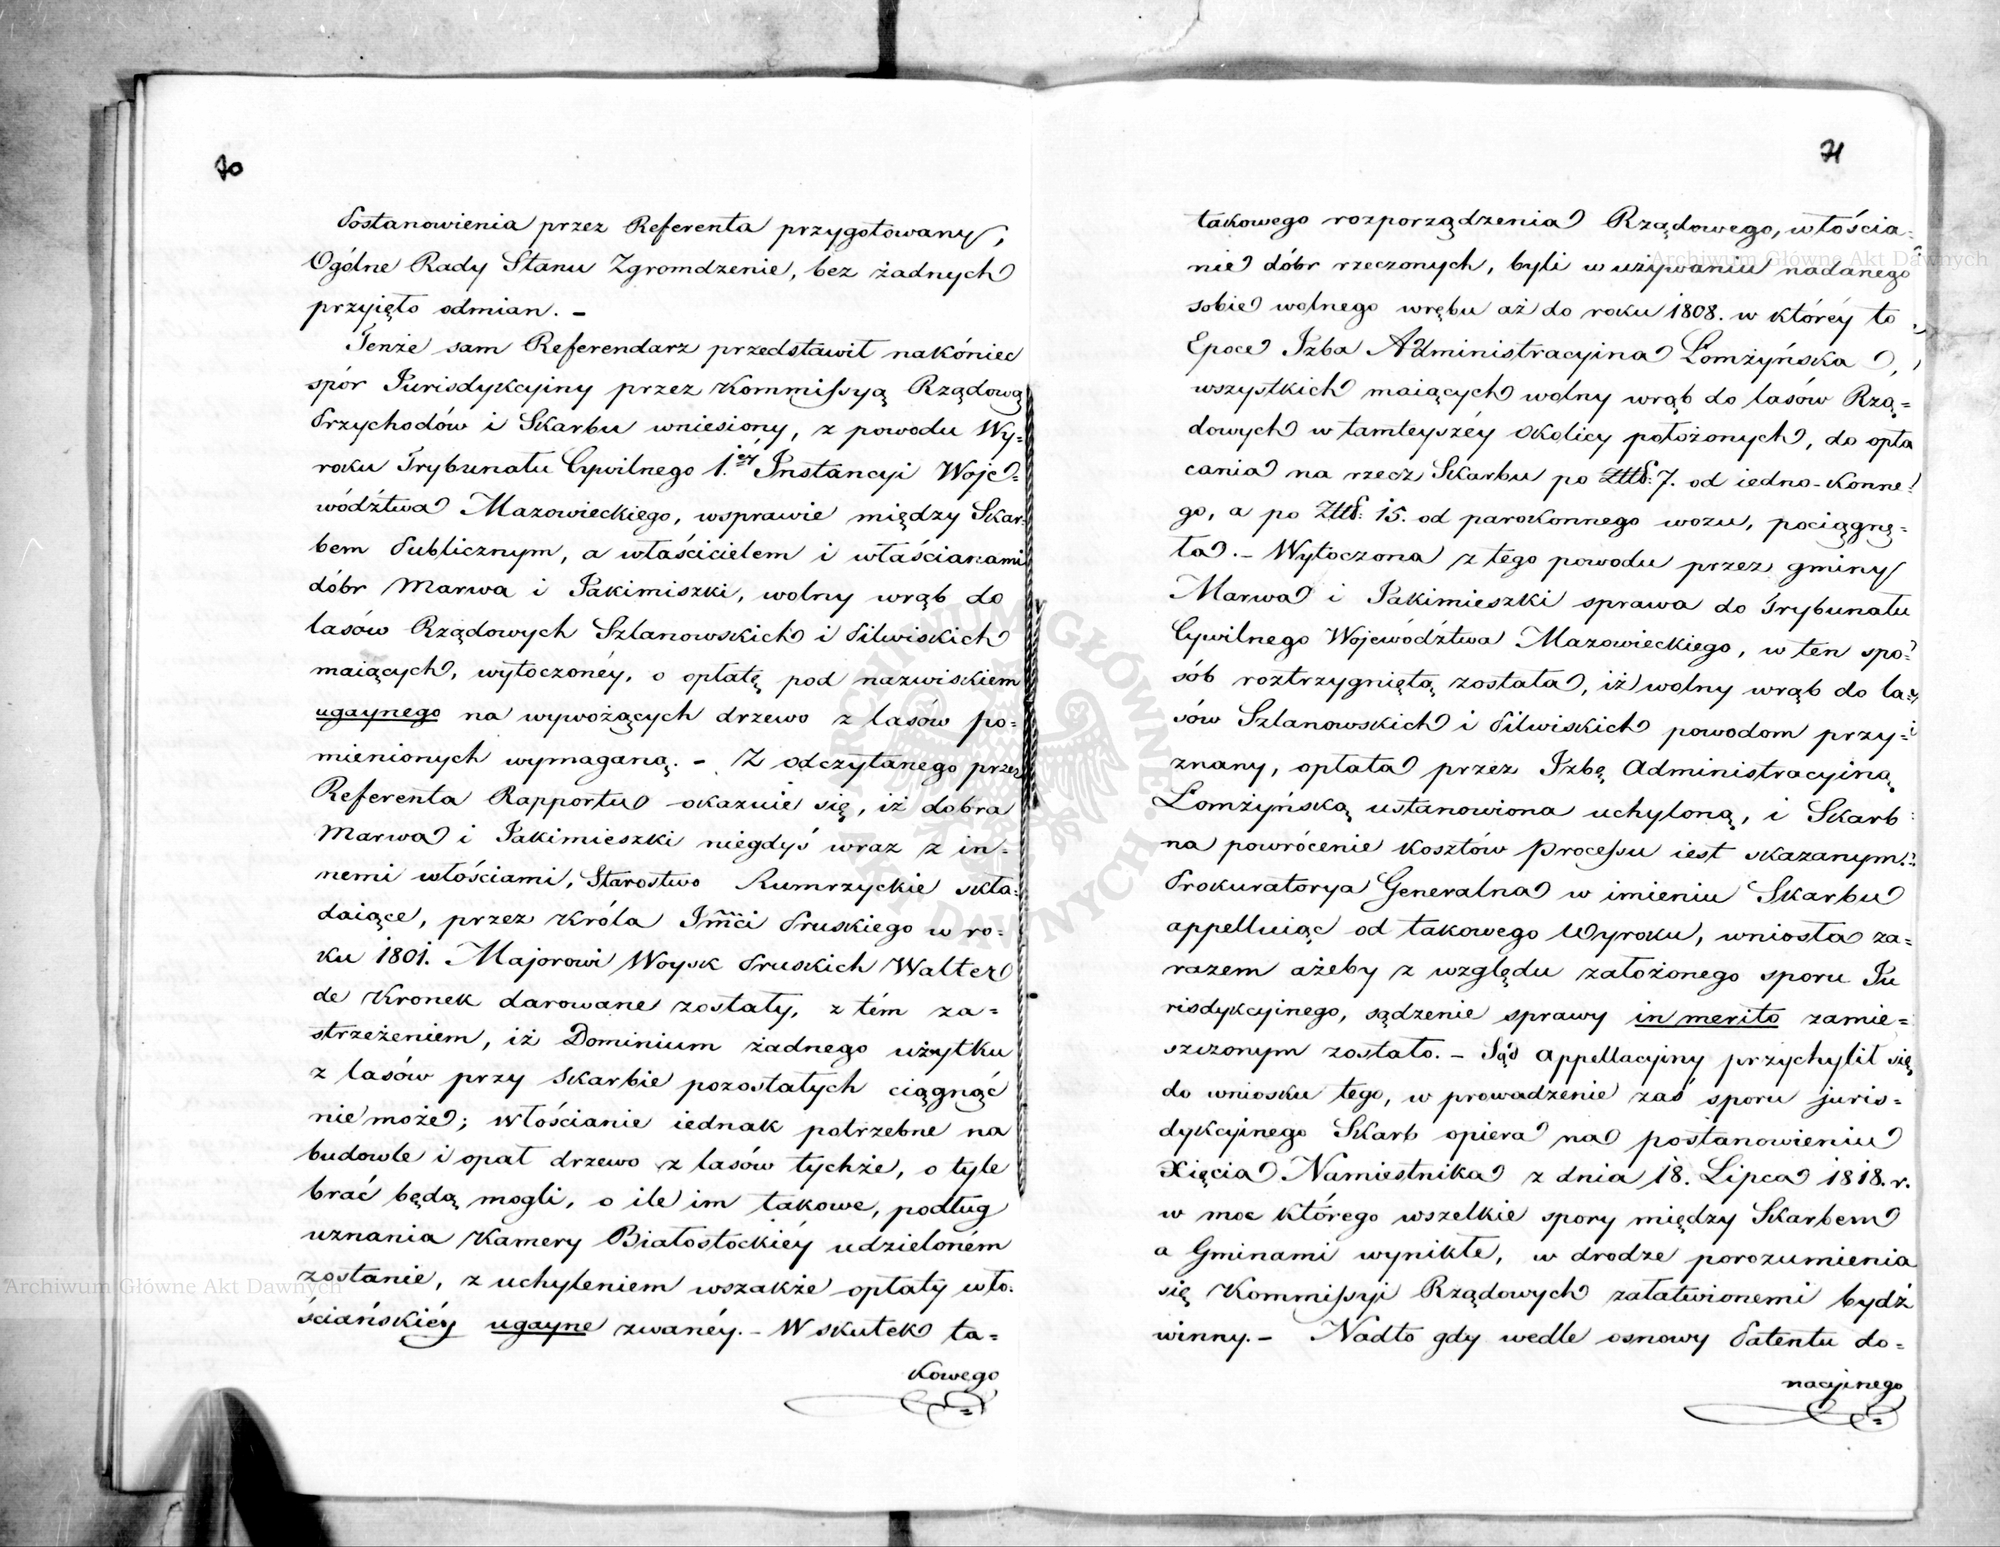 70
Postanowienia przez Referenta przygotowany,
Ogólne Rady Stanu Zgromdzenie, bez żadnych
przyięto odmian. –
Tenże sam Referendarz przedstawił nakóniec
spór Jurisdykcyiny przez Kommissyą Rządową
Przychodów i Skarbu wniesiony, z powodu Wy=
roku Trybunału Cywilnego 1.éy Instancyi Woje=
wództwa Mazowieckiego, wsprawie między Skar=
bem Publicznym, a właścicielem i właścianami
dóbr Marwa i Jakimiszki, wolny wrąb do
lasów Rządowych Szlanowskich i Pilwiskich
maiących, wytoczonéy, o opłatę pod nazwiskiem
ugaynego na wywożących drzewo z lasów po=
mienionych wymaganą. – Z odczytanego przez
Referenta Rapportu okazuie się, iż dobra
Marwa i Jakimieszki niegdyś wraz z in=
nemi włościami, Starostwo Kumrzyckie skła=
daiące, przez Króla Jmci Pruskiego w ro=
ku 1801. Majorowi Woysk Pruskich Walter
de Kronek darowane zostały, z tém za=
strzeżeniem, iż Dominium żadnego użytku
z lasów przy Skarbie pozostałych ciągnąć
nie może; włościanie iednak potrzebne na
budowle i opał drzewo z lasów tychże, o tyle
brać będą mogli, o ile im takowe, podług
uznania Kamery Białostockiéy udzieloném
zostanie, z uchyleniem wszakże opłaty wło=
ściańskiéy ugayne zwanéy. – W skutek ta=
kowego
71
takowego rozporządzenia Rządowego, włościa=
nie dóbr rzeczonych, byli w używaniu nadanego
sobie wolnego wrębu aż do roku 1808. w któréy to
Epoce Izba Administracyina Łomżyńska,
wszystkich maiących wolny wrąb do lasów Rzą=
dowych w tamteyszéy okolicy położonych, do opła
cania na rzecz Skarbu po Złtt: 7. od iedno-konne
go, a po Złtt: 15. od parokonnego wozu, pociągnę=
ła. – Wytoczona z tego powodu przez gminy
Marwa i Jakimieszki sprawa do Trybunału
Cywilnego Województwa Mazowieckiego, w ten spo=
sób roztrzygniętą została, iż wolny wrąb do la=
sów Szlanowskich i Pilwiskich powodom przy=
znany, opłata przez Izbę Administracyiną
Łomżyńską ustanowiona uchyloną, i Skarb
na powrócenie kosztów Processu iest skazanym.
Prokuratorya Generalna w imieniu Skarbu
appelluiąc od takowego Wyroku, wniosła za=
razem ażeby z względu założonego sporu Ju
risdykcyinego, sądzenie sprawy in merito zamie=
szczonym zostało. – Sąd Appellacyiny przychylił się
do wniosku tego, w prowadzenie zaś sporu juris=
dykcyinego Skarb opiera na postanowieniu
Xięcia Namiestnika z dnia 18. Lipca 1818. r.
w moc którego wszelkie spory między Skarbem
a Gminami wynikłe, w drodze porozumienia
się Kommissyi Rządowych załatwionemi bydź
winny. – Nadto gdy wedle osnowy Patentu do=
nacyinego
Archiwum Główne Akt Dawnych
Archiwum Główne Akt Dawnych
ARCHIWUM GŁÓWNE AKT DAWNYCH